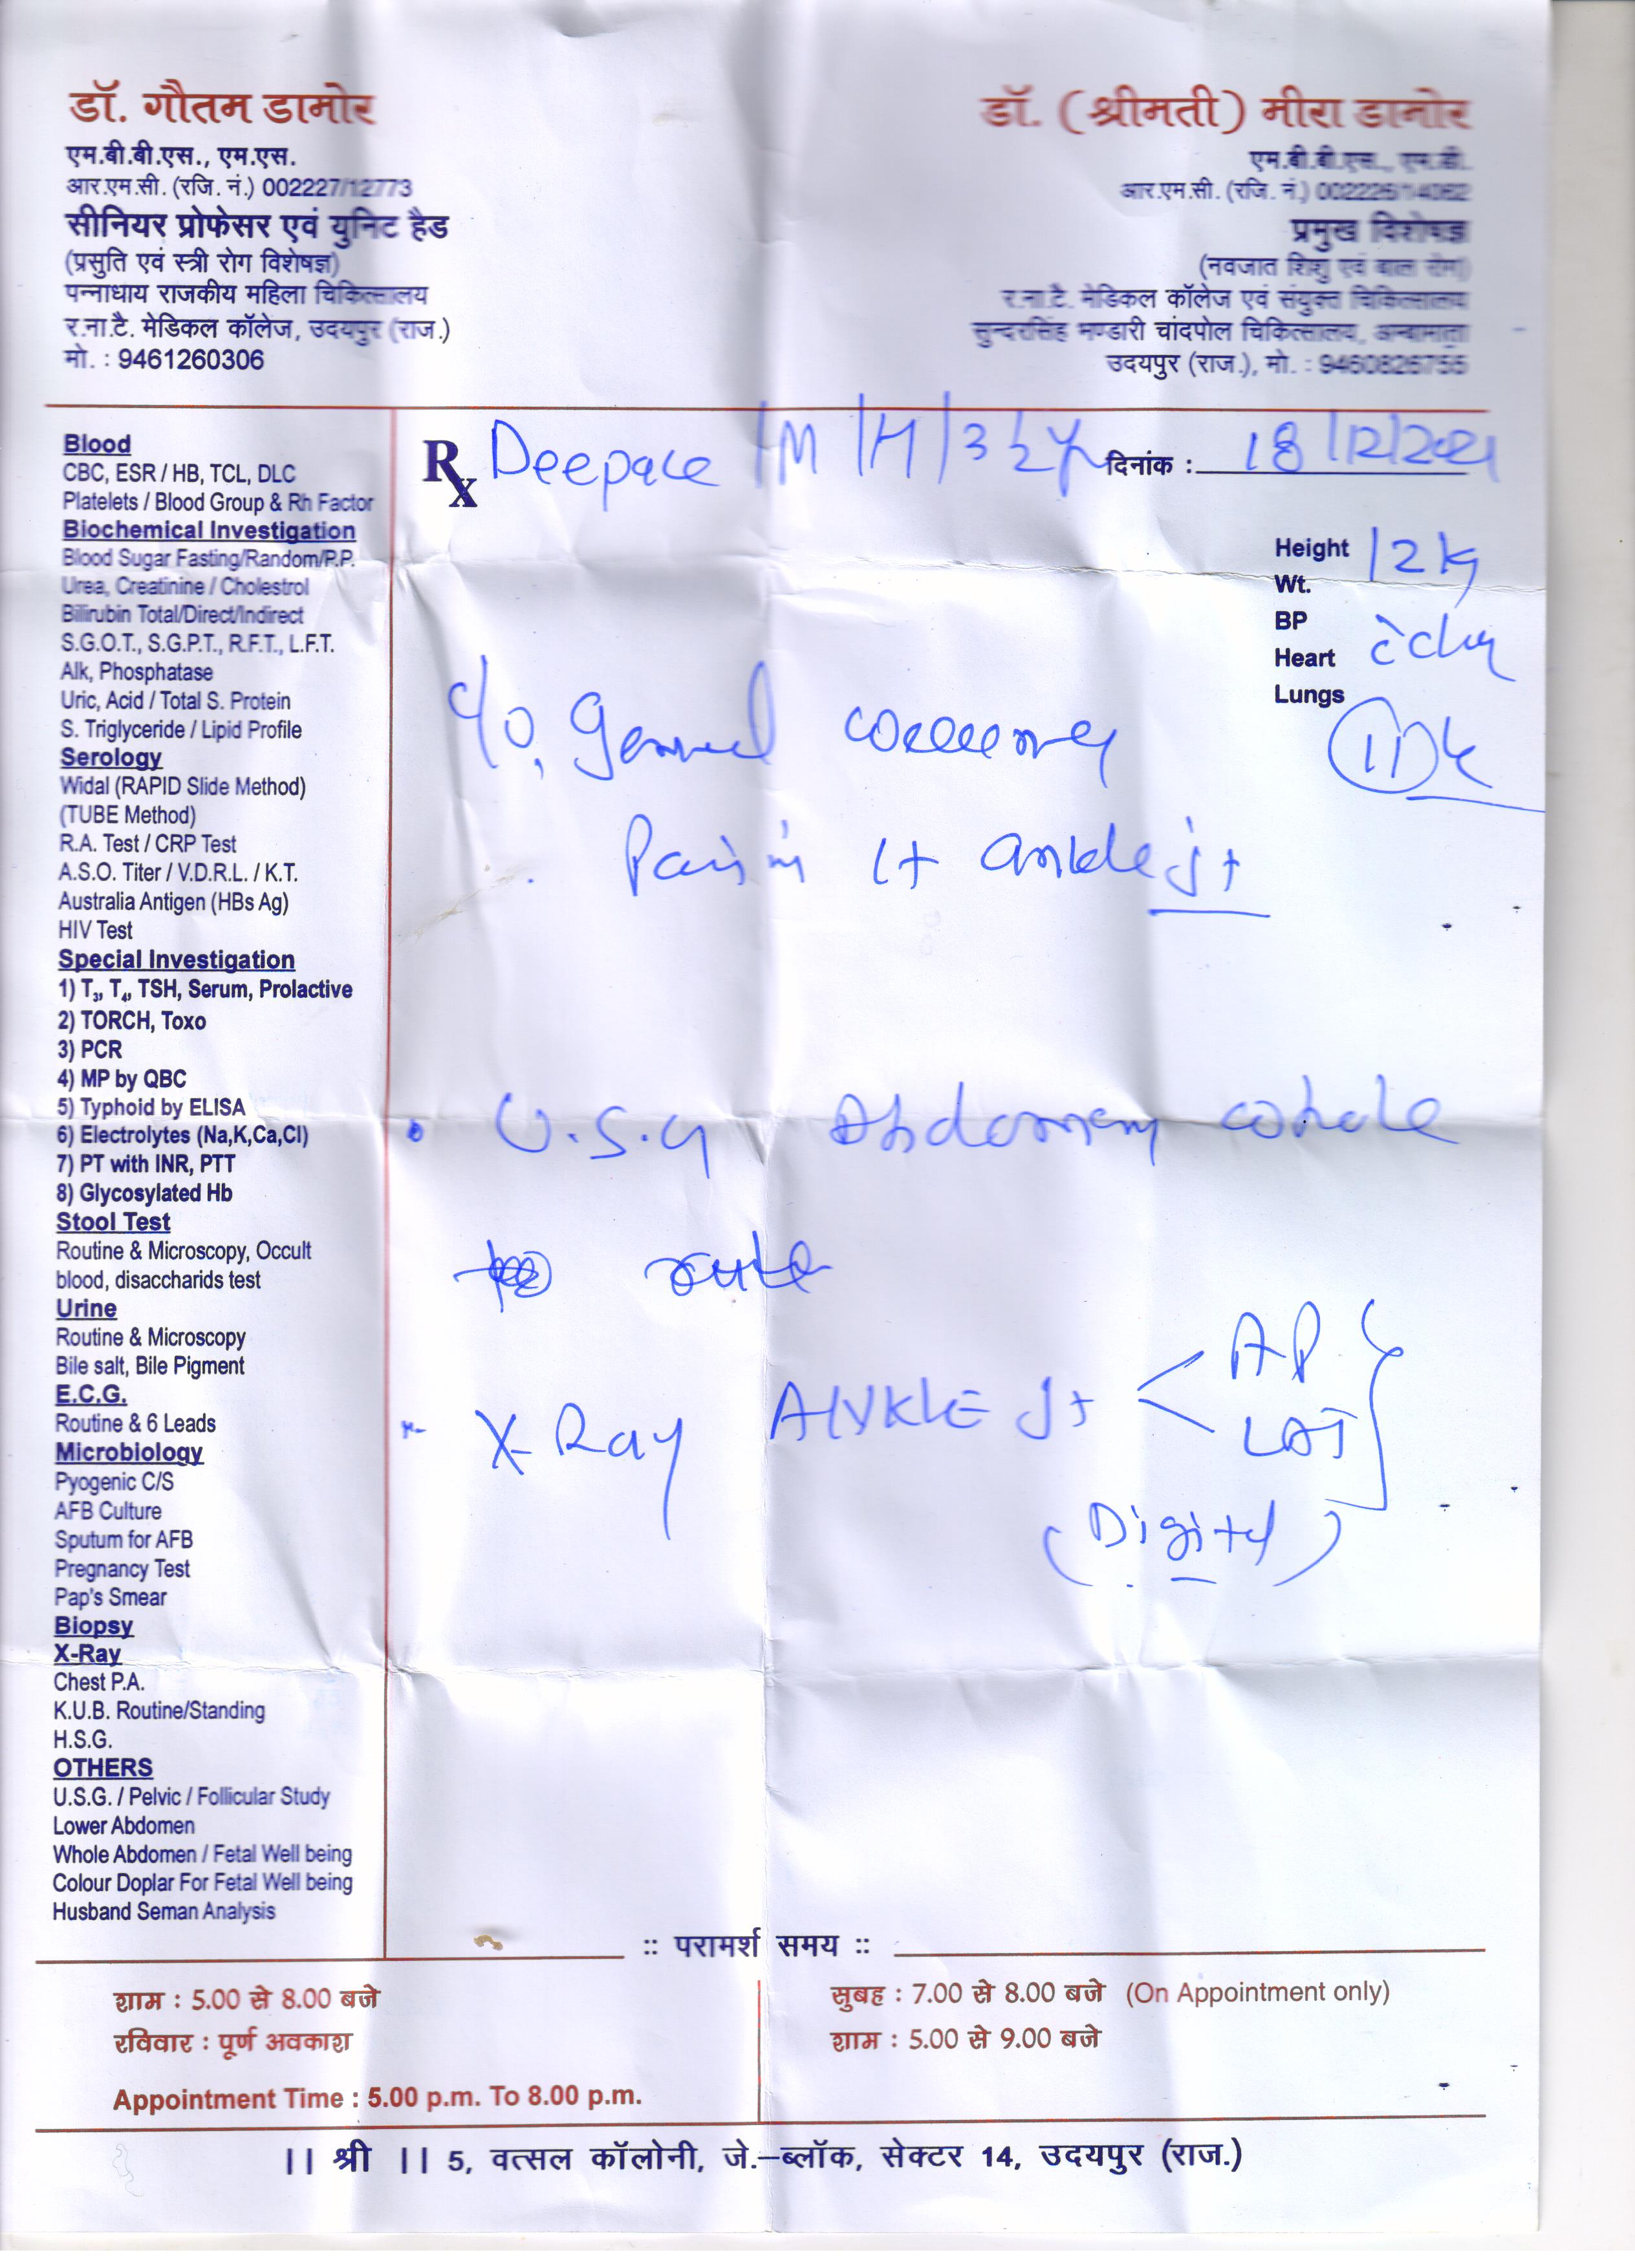 डॉ. गौतम डामोर
एम.बी.बी.एस., एम.एस.
आर.एम.सी. (रजि. नं.) 002227/12773
सीनियर प्रोफेसर एवं युनिट हैड
(प्रसुति एवं स्त्री रोग विशेषज्ञ)
पन्नाधाय राजकीय महिला चिकित्सालय
र.ना.टै. मेडिकल कॉलेज, उदयपुर (राज.)
मो. : 9461260306
डॉ. (श्रीमती) मीरा डामोर
एम.बी.बी.एस., एम.डी.
आर.एम.सी. (रजि. नं.)
प्रमुख विशेषज्ञ
(नवजात शिशु एवं बाल रोग)
र.ना.टै. मेडिकल कॉलेज एवं संयुक्त चिकित्सालय
सुन्दरसिंह भण्डारी चांदपोल चिकित्सालय, अम्बामाता
उदयपुर (राज.), मो. : 9460826755
Blood
CBC, ESR / HB, TCL, DLC
Platelets / Blood Group & Rh Factor
Biochemical Investigation
Blood Sugar Fasting/Random/P.P.
Urea, Creatinine / Cholestrol
Bilirubin Total/Direct/Indirect
S.G.O.T., S.G.P.T., R.F.T., L.F.T.
Alk, Phosphatase
Uric, Acid / Total S. Protein
S. Triglyceride / Lipid Profile
Serology
Widal (RAPID Slide Method)
(TUBE Method)
R.A. Test / CRP Test
A.S.O. Titer / V.D.R.L. / K.T.
Australia Antigen (HBs Ag)
HIV Test
Special Investigation
1) T₃, T₄, TSH, Serum, Prolactive
2) TORCH, Toxo
3) PCR
4) MP by QBC
5) Typhoid by ELISA
6) Electrolytes (Na,K,Ca,Cl)
7) PT with INR, PTT
8) Glycosylated Hb
Stool Test
Routine & Microscopy, Occult
blood, disaccharids test
Urine
Routine & Microscopy
Bile salt, Bile Pigment
E.C.G.
Routine & 6 Leads
Microbiology
Pyogenic C/S
AFB Culture
Sputum for AFB
Pregnancy Test
Pap's Smear
Biopsy
X-Ray
Chest P.A.
K.U.B. Routine/Standing
H.S.G.
OTHERS
U.S.G. / Pelvic / Follicular Study
Lower Abdomen
Whole Abdomen / Fetal Well being
Colour Doplar For Fetal Well being
Husband Seman Analysis
Rx /M/H/3½y दिनांक : 18/12/2021
Height 12 kg
Wt.
BP
Heart
Lungs
c/o
Pain in Lt ankle jt
U.S.G Abdomen whole
X-Ray ANKLE Jt AP
LAT
(Digital)
:: परामर्श समय ::
शाम : 5.00 से 8.00 बजे
रविवार : पूर्ण अवकाश
Appointment Time : 5.00 p.m. To 8.00 p.m.
सुबह : 7.00 से 8.00 बजे (On Appointment only)
शाम : 5.00 से 9.00 बजे
|| श्री || 5, वत्सल कॉलोनी, जे.–ब्लॉक, सेक्टर 14, उदयपुर (राज.)